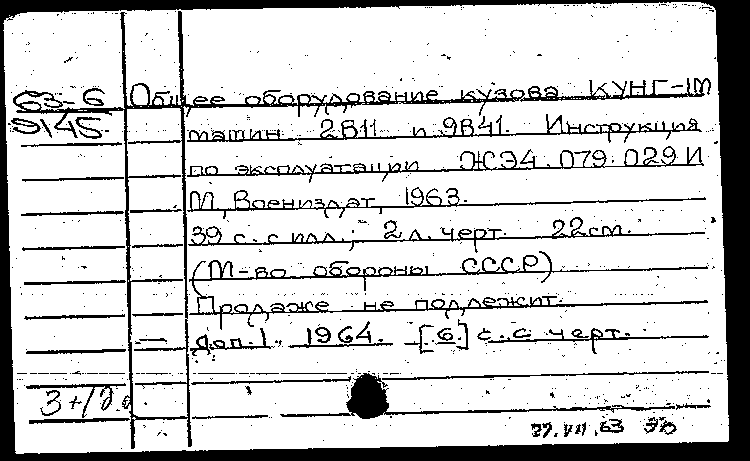 63-6 Общее оборудование кузова КУНГ-1М
9145 машин 2В11 и 9В41. Инструкция
по эксплуатации ЖЭ4.079.029 И
М, Воениздат, 1963.
39 с. с илл.; 2 л. черт. 22 см.
(М-во обороны СССР)
Продаже не подлежит.
— Доп. 1. 1964. [6] с. с черт.
3+/2
27.VII.63